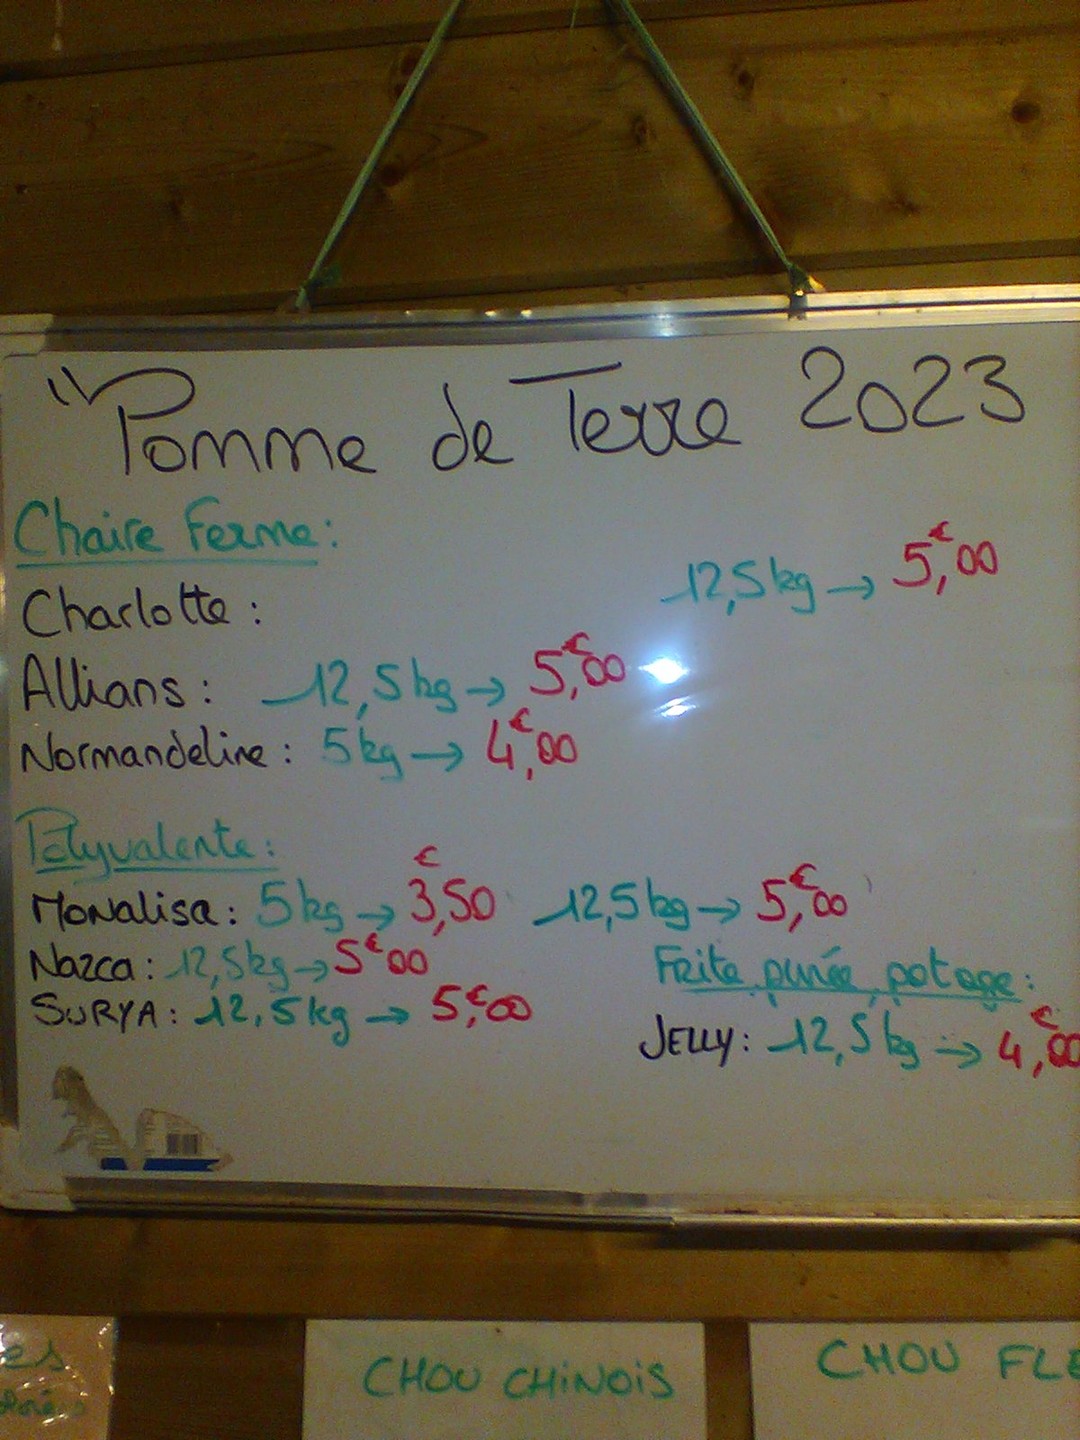 Pomme de Terre 2023
Chaire Ferme:
Charlotte: 12,5kg → 5,€00
Allians: 12,5kg → 5,€00
Normandeline: 5kg → 4,€00
Polyvalente:
Monalisa: 5kg → 3,€50 12,5kg → 5,€00
Nazca: 12,5kg → 5€00
SURYA: 12,5kg → 5,€00
Frite, purée, potage:
JELLY: 12,5kg → 4,€00
es
CHOU CHINOIS
CHOU FLE